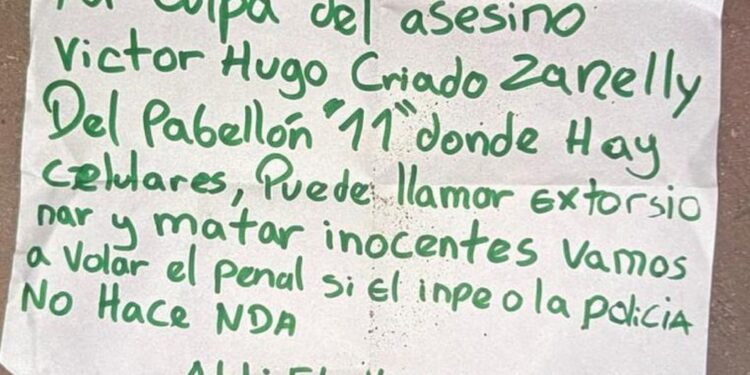 culpa del asesino
Victor Hugo Criado Zanelly
Del Pabellón "11" donde Hay
celulares, Puede llamor Extorsio
nar y matar inocentes Vamos
a Volar el penal si El inpe o la policia
No Hace NDA